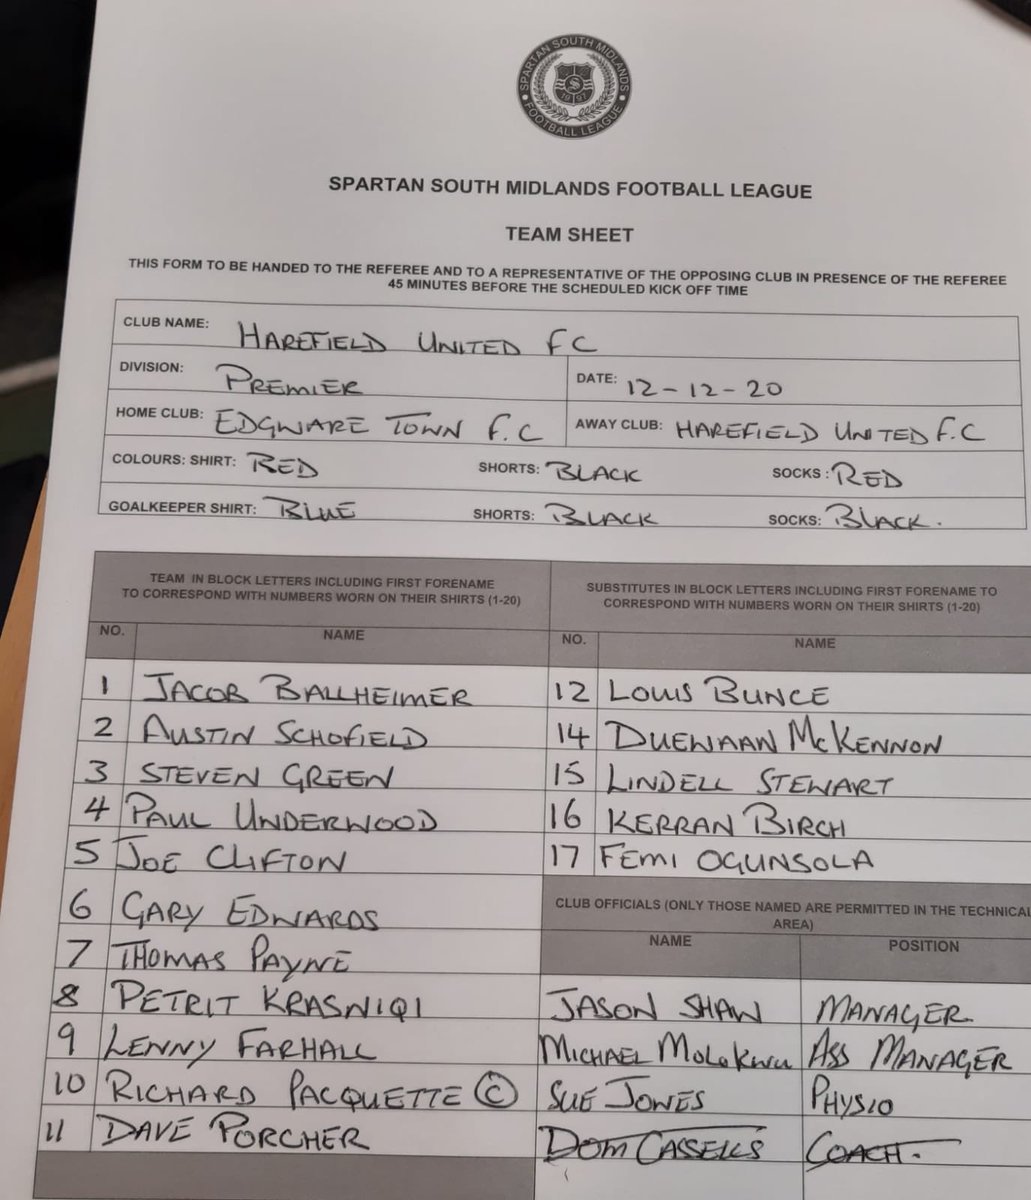 SPARTAN SOUTH MIDLANDS
FOOTBALL LEAGUE
SPARTAN SOUTH MIDLANDS FOOTBALL LEAGUE
TEAM SHEET
THIS FORM TO BE HANDED TO THE REFEREE AND TO A REPRESENTATIVE OF THE OPPOSING CLUB IN PRESENCE OF THE REFEREE
45 MINUTES BEFORE THE SCHEDULED KICK OFF TIME
CLUB NAME: HAREFIELD UNITED FC
DIVISION: PREMIER DATE: 12-12-20
HOME CLUB: EDGWARE TOWN F.C AWAY CLUB: HAREFIELD UNITED F.C
COLOURS: SHIRT: RED SHORTS: BLACK SOCKS: RED
GOALKEEPER SHIRT: BLUE SHORTS: BLACK SOCKS: BLACK.
TEAM IN BLOCK LETTERS INCLUDING FIRST FORENAME
TO CORRESPOND WITH NUMBERS WORN ON THEIR SHIRTS (1-20)
NO. NAME
1 JACOB BALLHEIMER
2 AUSTIN SCHOFIELD
3 STEVEN GREEN
4 PAUL UNDERWOOD
5 JOE CLIFTON
6 GARY EDWARDS
7 THOMAS PAYNE
8 PETRIT KRASNIQI
9 LENNY FARHALL
10 RICHARD PACQUETTE ©
11 DAVE PORCHER
SUBSTITUTES IN BLOCK LETTERS INCLUDING FIRST FORENAME TO
CORRESPOND WITH NUMBERS WORN ON THEIR SHIRTS (1-20)
NO. NAME
12 LOUIS BUNCE
14 DUEWAAN McKENNON
15 LINDELL STEWART
16 KERRAN BIRCH
17 FEMI OGUNSOLA
CLUB OFFICIALS (ONLY THOSE NAMED ARE PERMITTED IN THE TECHNICAL
AREA)
NAME POSITION
JASON SHAW MANAGER
MICHAEL MOLOKWU ASS MANAGER
SUE JONES PHYSIO
DOM CASSELLS COACH.